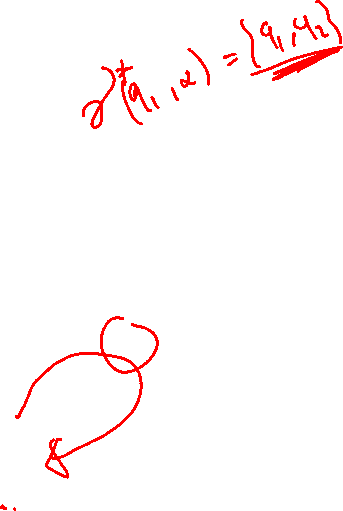 ∂*(q₁, α) = {q₁, q₂}